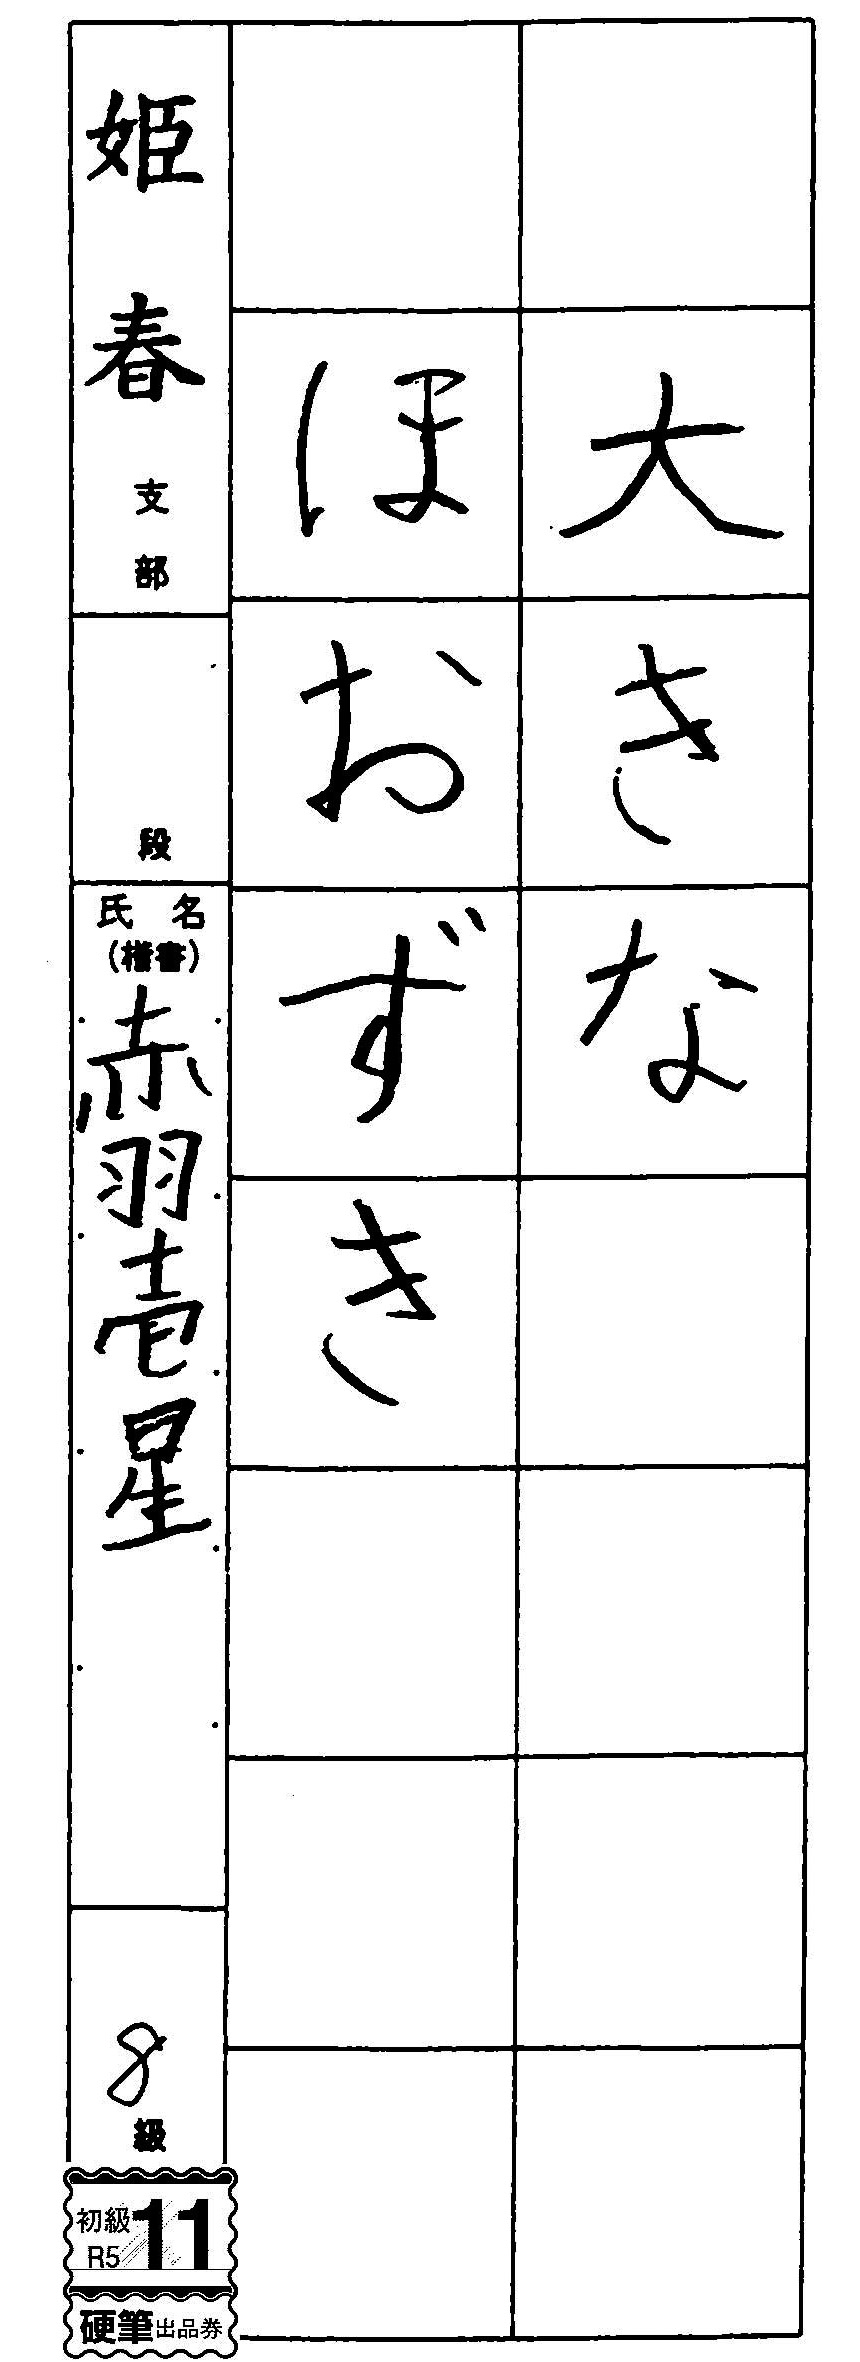 大きな
ほおずき
姫春支部
段
氏名
(楷書)
赤羽壱星
8級
初級
R5
11
硬筆出品券